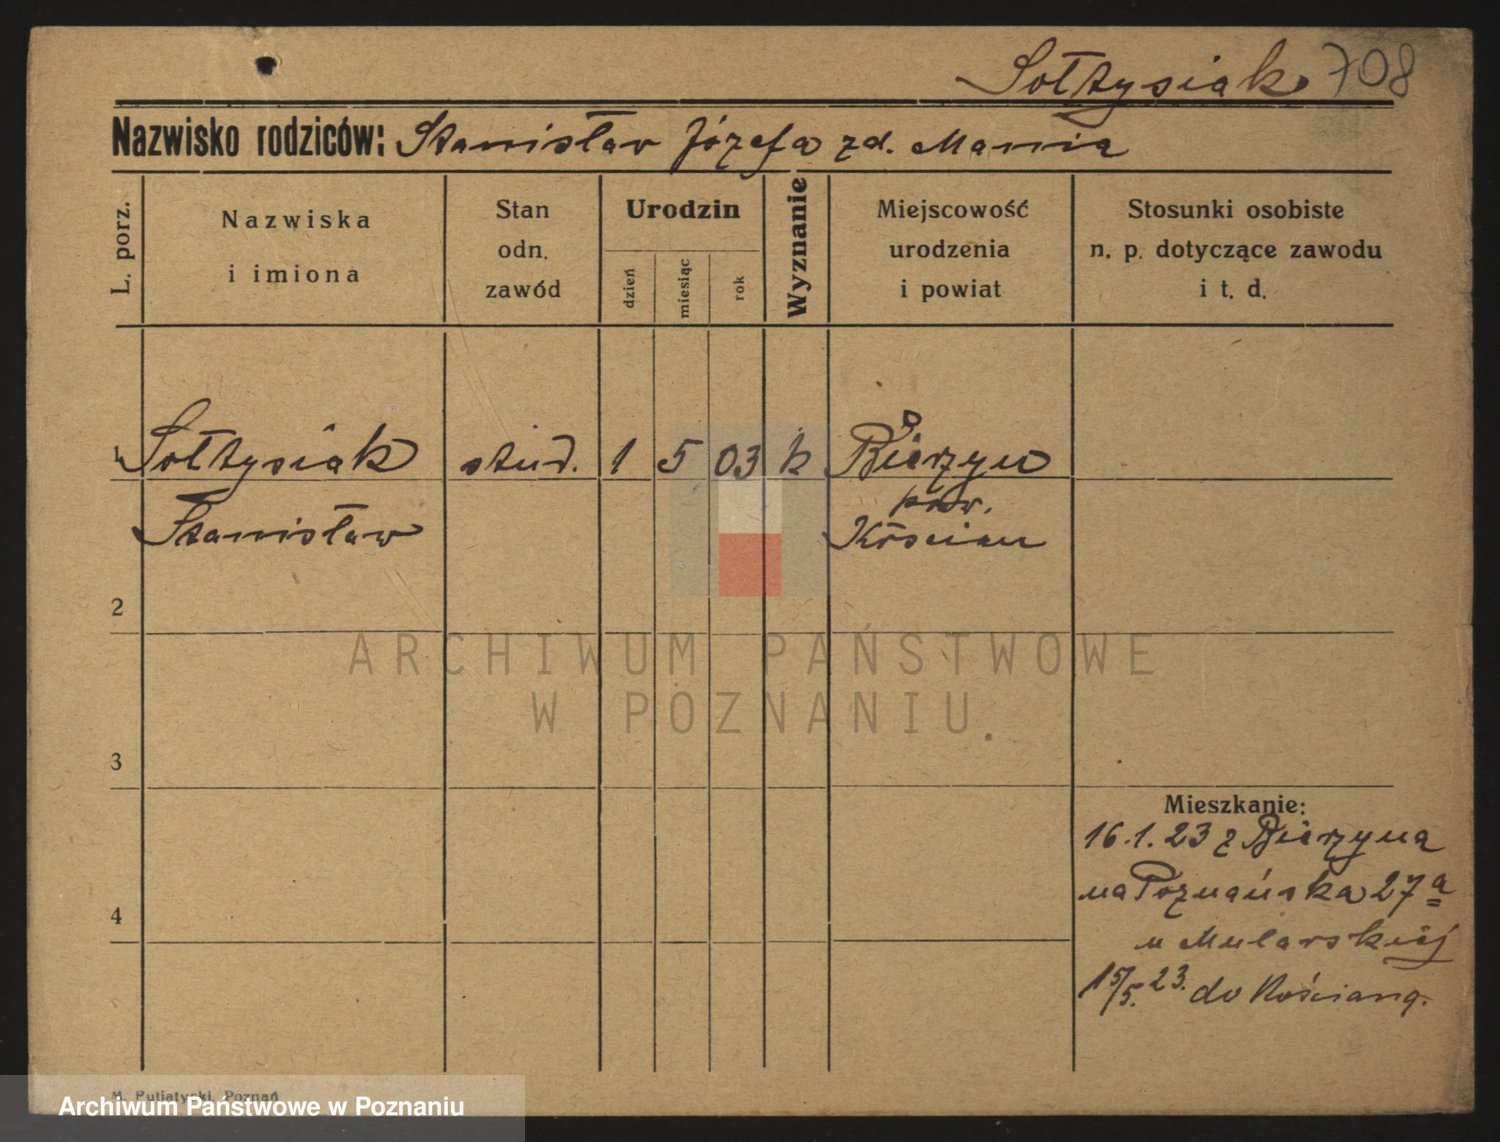 Sołtysiak 708
Nazwisko rodziców: Stanisław Józefa zd. Mania
L. porz.
Nazwiska
i imiona
Stan
odn.
zawód
Urodzin
dzień
miesiąc
rok
Wyznanie
Miejscowość
urodzenia
i powiat
Stosunki osobiste
n. p. dotyczące zawodu
i t. d.
1 Sołtysiak stud. 1 5 03 k Bierzyn
Stanisław
pow.
2
ARCHIWUM PAŃSTWOWE
W POZNANIU.
3
Mieszkanie:
16.1.23 z Bierzyna
na Poznańska 27a
4
u Mularskiej
15/5.23. do Kościana.
M. Putiatycki, Poznań
Archiwum Państwowe w Poznaniu